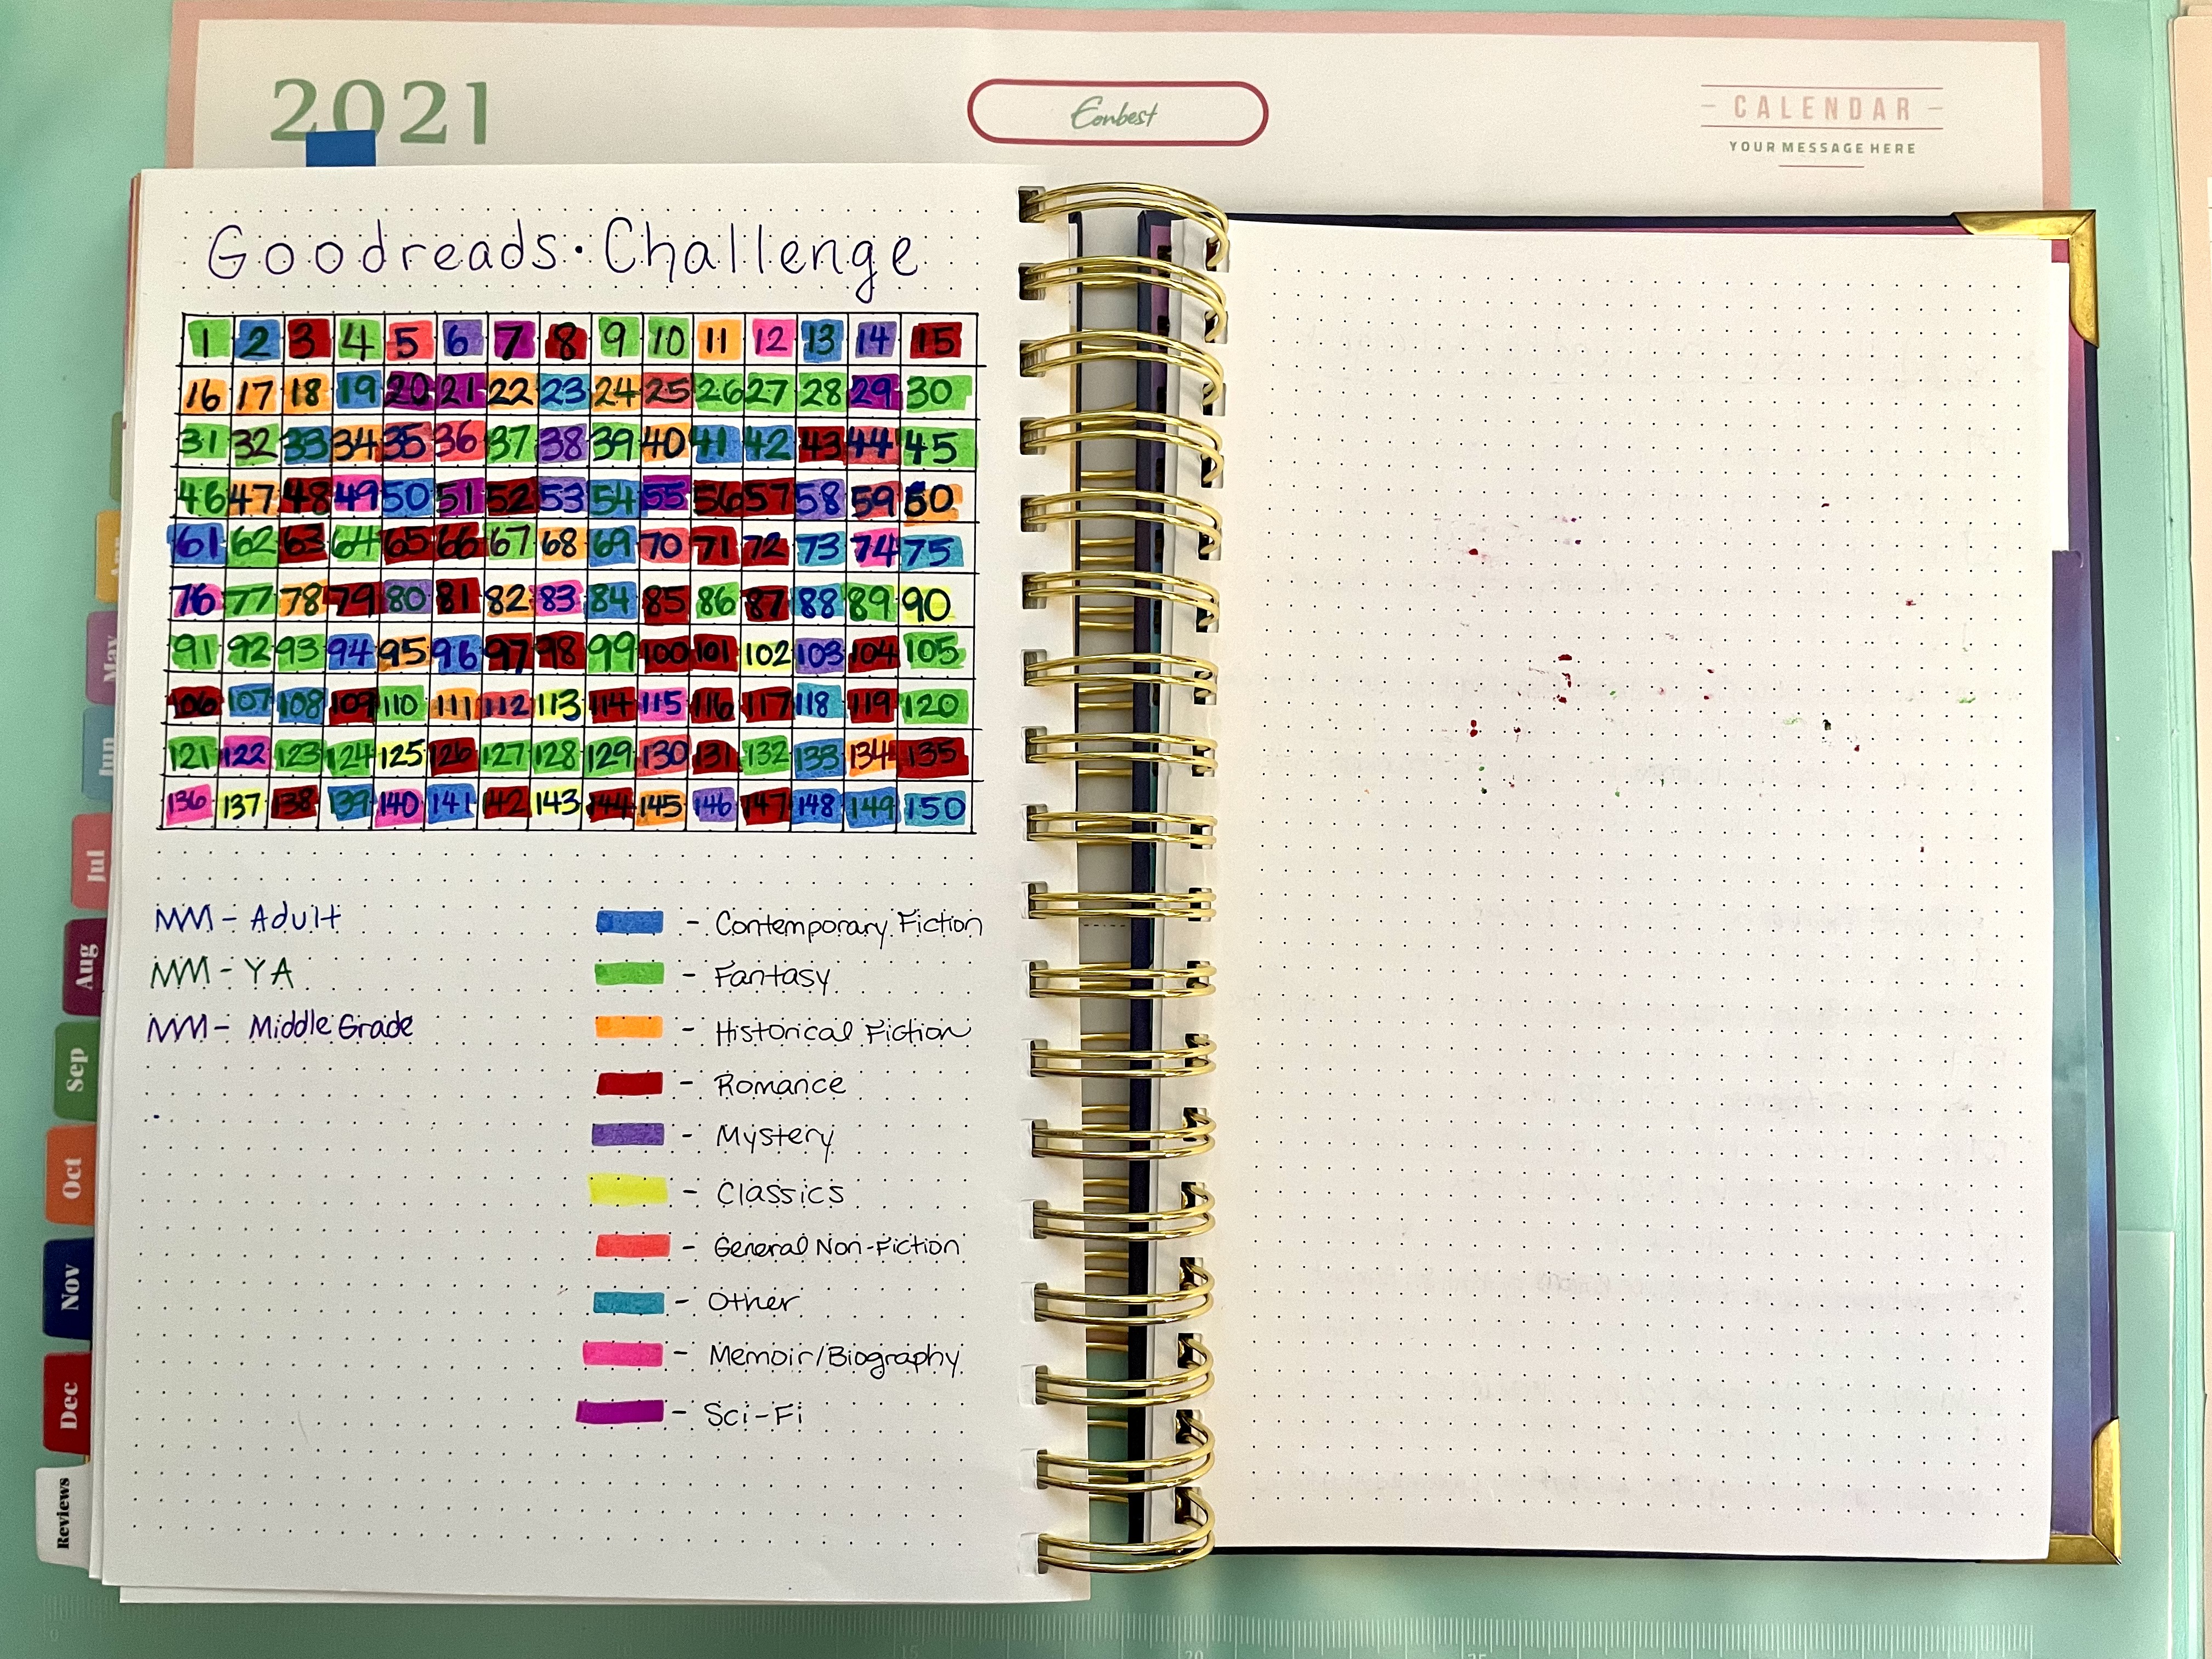 2021
Eonbest
CALENDAR
YOUR MESSAGE HERE
Goodreads · Challenge
1 2 3 4 5 6 7 8 9 10 11 12 13 14 15
16 17 18 19 20 21 22 23 24 25 26 27 28 29 30
31 32 33 34 35 36 37 38 39 40 41 42 43 44 45
46 47 48 49 50 51 52 53 54 55 56 57 58 59 50
61 62 63 64 65 66 67 68 69 70 71 72 73 74 75
76 77 78 79 80 81 82 83 84 85 86 87 88 89 90
91 92 93 94 95 96 97 98 99 100 101 102 103 104 105
106 107 108 109 110 111 112 113 114 115 116 117 118 119 120
121 122 123 124 125 126 127 128 129 130 131 132 133 134 135
136 137 138 139 140 141 142 143 144 145 146 147 148 149 150
- Adult
- YA
- Middle Grade
- Contemporary Fiction
- Fantasy
- Historical Fiction
- Romance
- Mystery
- Classics
- General Non-Fiction
- Other
- Memoir/Biography
- Sci-Fi
May
Jun
Jul
Aug
Sep
Oct
Nov
Dec
Reviews
15
20
25